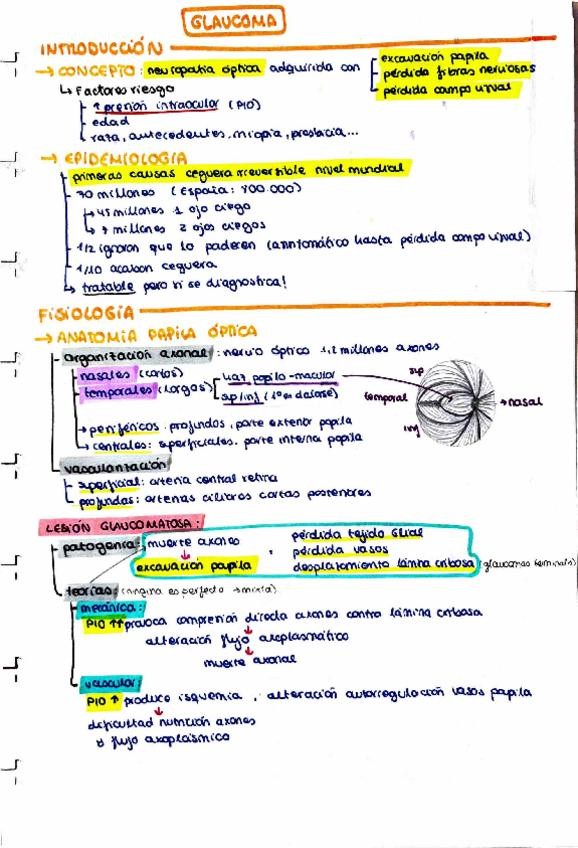 GLAUCOMA
INTRODUCCIÓN
→ CONCEPTO: neuropatía óptica adquirida con
excavación papila
pérdida fibras nerviosas
pérdida campo visual
↳ Factores riesgo
↑ presión intraocular (PIO)
edad
raza, antecedentes, miopía, presbicia...
→ EPIDEMIOLOGÍA
primeras causas ceguera irreversible nivel mundial
70 millones (España: 800.000)
↳ 45 millones 1 ojo ciego
↳ 7 millones 2 ojos ciegos
1/2 ignoran que lo padecen (asintomático hasta pérdida campo visual)
1/10 acaban ceguera
↳ tratable pero si se diagnostica!
FISIOLOGÍA
→ ANATOMÍA PAPILA ÓPTICA
organización axonal: nervio óptico 1,2 millones axones
nasales (cortos)
temporales (largos)
haz papilo-macular
sup/inf (1os en dañarse)
sup
temporal
→ nasal
inf
↳ periféricos: profundos, parte exterior papila
↳ centrales: superficiales, parte interna papila
vascularización
superficial: arteria central retina
profundas: arterias ciliares cortas posteriores
LESIÓN GLAUCOMATOSA:
patogenia: muerte axones
excavación papila
pérdida tejido glial
pérdida vasos
desplazamiento lámina cribosa (glaucomas terminales)
teorías: (ninguna es perfecta → mixta)
mecánica:
PIO ↑↑ provoca compresión directa axones contra lámina cribosa
alteración flujo axoplasmático
muerte axonal
vascular:
PIO ↑ produce isquemia, alteración autorregulación vasos papila
dificultad nutrición axones
y flujo axoplásmico